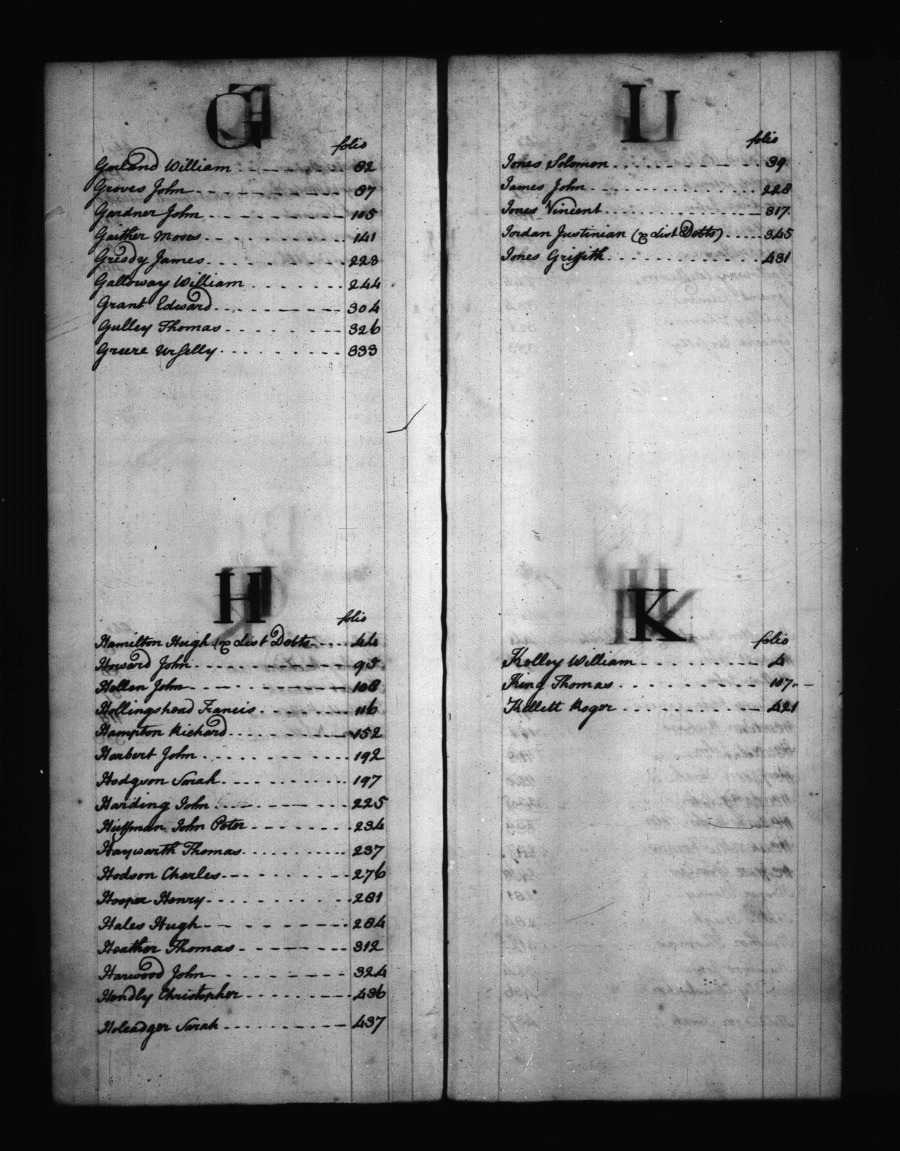 G
folio
Garland William 82
Groves John 87
Gardner John 105
Gaither Moses 141
Gready James 223
Galloway William 244
Grant Edward 304
Gulley Thomas 326
Greere 333
H
folio
Hamilton Hugh ( dist Debts 44
Howard John 95
Hollen John 108
Hollingshead Francis 116
Hampton Richard 152
Harbert John 192
Hodgson Sarah 197
Harding John 225
Huffman John Peter 234
Hayworth Thomas 237
Hodson Charles 276
Hooper Henry 281
Hales Hugh 284
Heather Thomas 312
Harwood John 324
Hendly Christopher 436
Holeadger Sarah 437
I
folio
Jones Solomon 39
James John 228
Jones Vincent 317
Jordan Justinian ( dist Debts) 345
Jones Griffith 431
K
folio
Kelley William 4
King Thomas 107
Kellett Roger 421